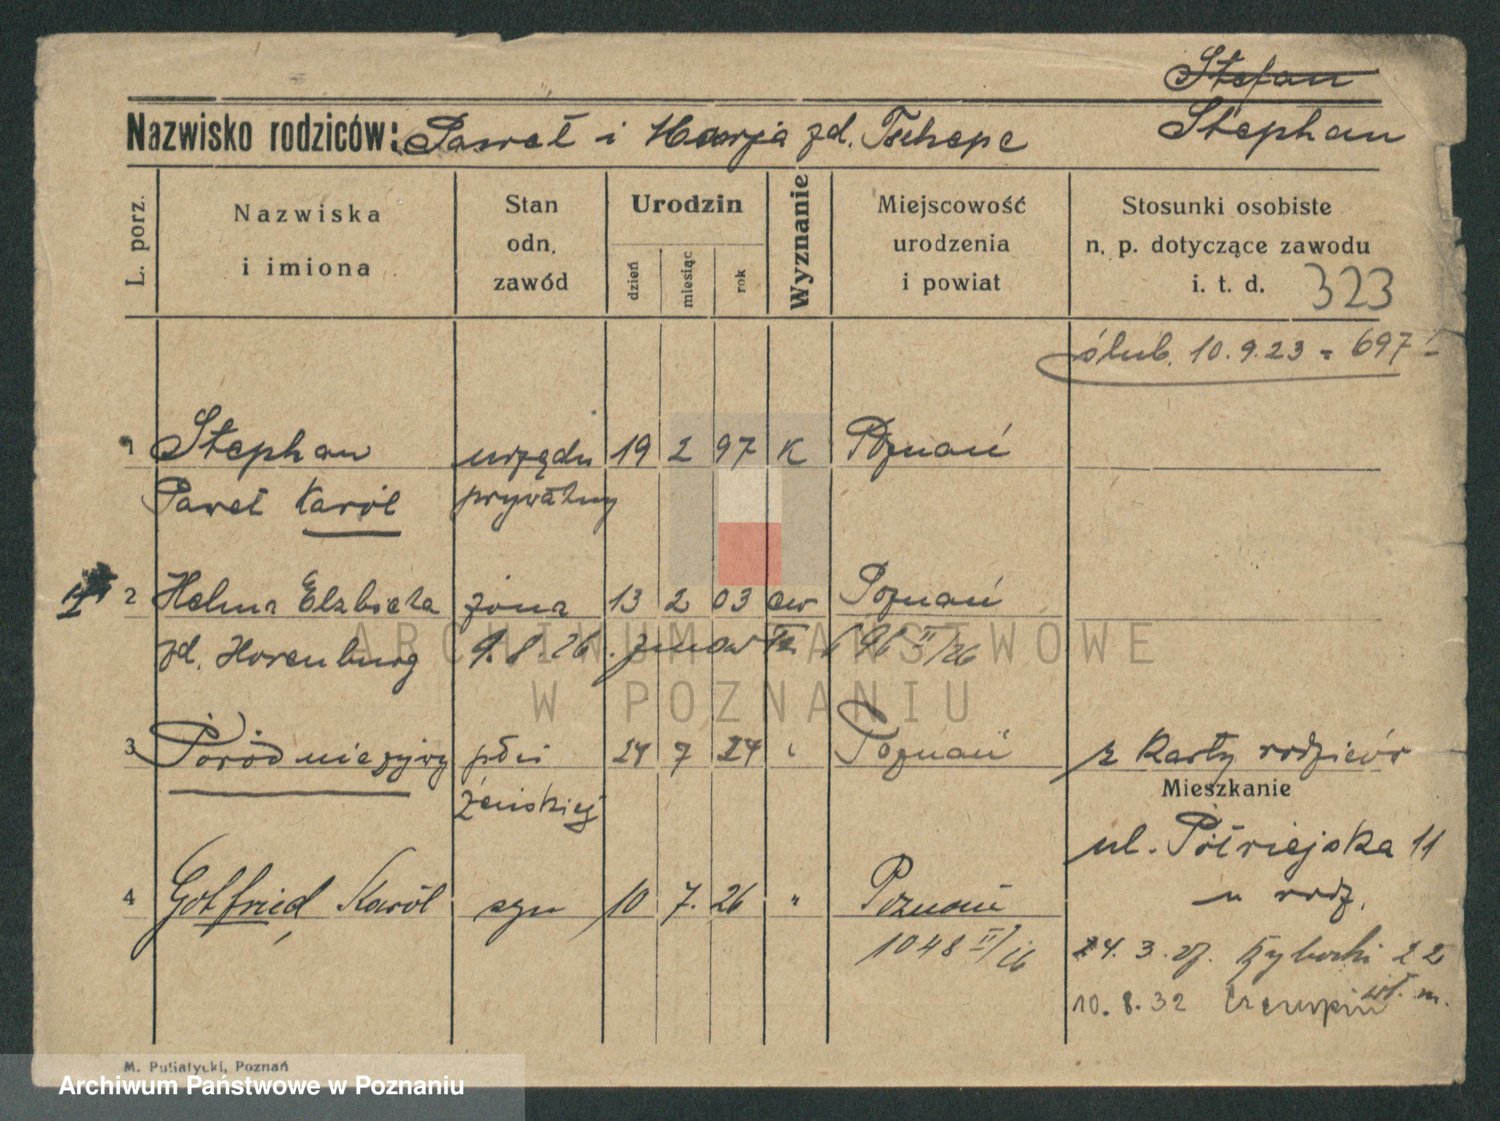 Stefan
Nazwisko rodziców: Paweł i Marja zd. Tschepe Stephan
L. porz.
Nazwiska
i imiona
Stan
odn.
zawód
Urodzin
dzień
miesiąc
rok
Wyznanie
Miejscowość
urodzenia
i powiat
Stosunki osobiste
n. p. dotyczące zawodu
i. t. d. 323
ślub. 10.9.23 = 697
1 Stephan urzędn 19 2 97 K Poznań
Paweł Karól prywatny
2 Helena Elzbieta żona 13 2 03 ew Poznań
zd. Horenburg 9.8.26. 696 II/26
3 Poród nieżywy płci 24 7 24 Poznań z karty rodziców
żeńskiej
Mieszkanie
ul. Półwiejska 11
u rodz.
4 Gotfried Karól syn 10 7. 26 " Poznań
1048 II/26
24.3.27. 22
wł. m.
10.8.32
ARCHIWUM PAŃSTWOWE
W POZNANIU
M. Putiatycki, Poznań
Archiwum Państwowe w Poznaniu